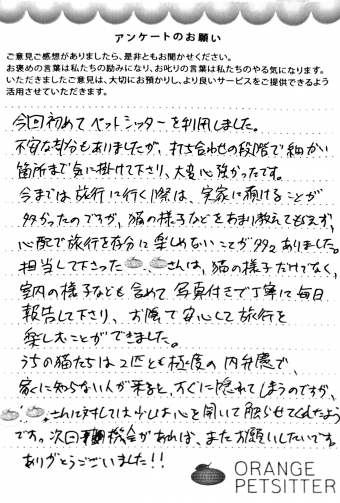 アンケートのお願い
ご意見ご感想がありましたら、是非ともお聞かせください。
お褒めの言葉は私たちの励みになり、お叱りの言葉は私たちのやる気になります。
いただきましたご意見は、大切にお預かりし、より良いサービスをご提供できるよう
活用させていただきます。
今回初めてペットシッターを利用しました。
不安な部分もありましたが、打ち合わせの段階で細かい
箇所まで気に掛けて下さり、大変心強かったです。
今までは旅行に行く際は、実家に預けることが
多かったのですが、猫の様子などをあまり教えてもらえず、
心配で旅行を存分に楽しめないことが多々ありました。
担当して下さった さんは、猫の様子だけでなく、
室内の様子なども含めて写真付きで丁寧に毎日
報告して下さり、お陰で安心して旅行を
楽しむことができました。
うちの猫たちは2匹とも極度の内弁慶で、
家に知らない人が来ると、すぐに隠れてしまうのですが、
さんに対しては少しは心を開いて触らせてくれたよう
です。次回も機会があれば、またお願いしたいです。
ありがとうございました!!
ORANGE
PETSITTER